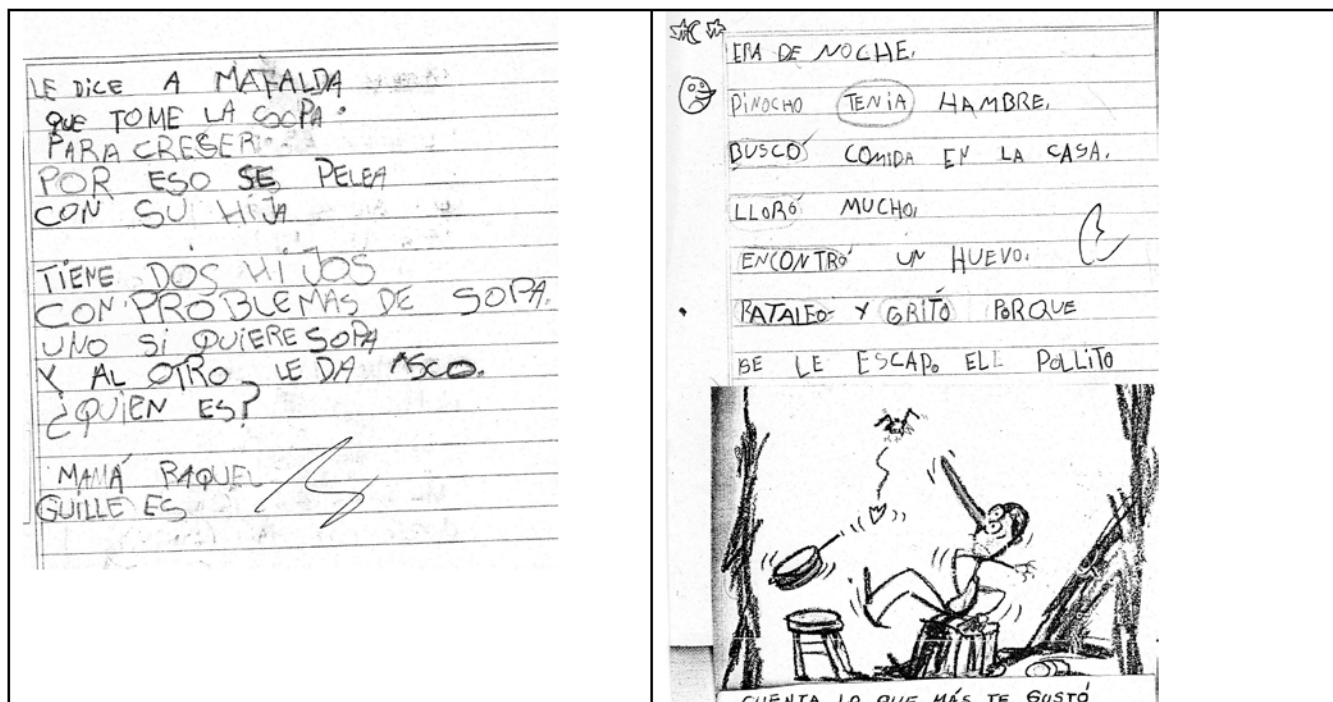 LE DICE A MAFALDA
QUE TOME LA SOPA.
PARA CRESER
POR ESO SE PELEA
CON SU HIJA
TIENE DOS HIJOS
CON PROBLEMAS DE SOPA.
UNO SI QUIERE SOPA
Y AL OTRO LE DA ASCO.
¿QUIEN ES?
MAMÁ RAQUEL
GUILLE ES
ERA DE NOCHE.
PINOCHO TENIA HAMBRE.
BUSCÓ COMIDA EN LA CASA.
LLORÓ MUCHO.
ENCONTRÓ UN HUEVO.
PATALEO Y GRITÓ PORQUE
SE LE ESCAPO ELL POLLITO
CUENTA LO QUE MÁS TE GUSTÓ